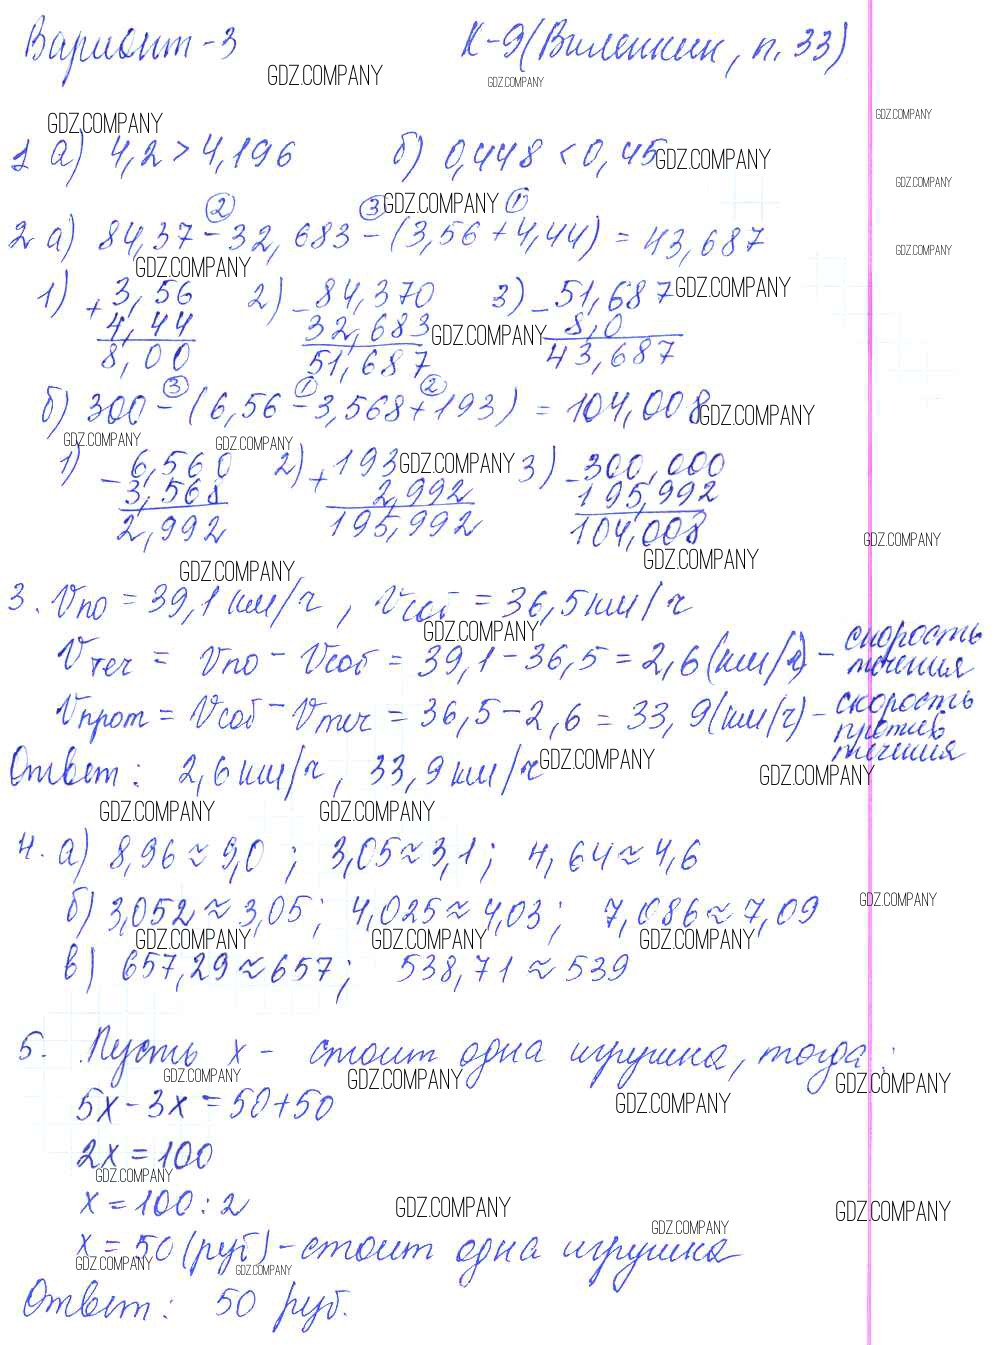 Вариант-3 К-9(Виленкин, п. 33)
GDZ.COMPANY GDZ.COMPANY
GDZ.COMPANY GDZ.COMPANY
1 а) 4,2 > 4,196 б) 0,448 < 0,45 GDZ.COMPANY
GDZ.COMPANY
② ③ GDZ.COMPANY ①
2 а) 84,37 − 32,683 − (3,56 + 4,44) = 43,687
GDZ.COMPANY GDZ.COMPANY
1) + 3,56 2) − 84,370 3) − 51,687 GDZ.COMPANY
4,44 32,683 GDZ.COMPANY 8,0
8,00 51,687 43,687
③ ① ②
б) 300 − (6,56 − 3,568 + 193) = 104,008 GDZ.COMPANY
GDZ.COMPANY GDZ.COMPANY
1) − 6,560 2) + 193 GDZ.COMPANY 3) − 300,000
3,568 2,992 195,992
2,992 195,992 104,008
GDZ.COMPANY
GDZ.COMPANY GDZ.COMPANY
3. Vпо = 39,1 км/ч, Vсоб = 36,5 км/ч
GDZ.COMPANY
Vтеч = Vпо − Vсоб = 39,1 − 36,5 = 2,6 (км/ч) − скорость
течения
Vпрот = Vсоб − Vтеч = 36,5 − 2,6 = 33,9 (км/ч) − скорость
против
течения
Ответ: 2,6 км/ч, 33,9 км/ч GDZ.COMPANY
GDZ.COMPANY
GDZ.COMPANY GDZ.COMPANY
4. а) 8,96 ≈ 9,0 ; 3,05 ≈ 3,1; 4,64 ≈ 4,6
GDZ.COMPANY
б) 3,052 ≈ 3,05; 4,025 ≈ 4,03; 7,086 ≈ 7,09
GDZ.COMPANY GDZ.COMPANY GDZ.COMPANY
в) 657,29 ≈ 657; 538,71 ≈ 539
5. Пусть x − стоит одна игрушка, тогда:
GDZ.COMPANY GDZ.COMPANY GDZ.COMPANY
5x − 3x = 50 + 50 GDZ.COMPANY
2x = 100
GDZ.COMPANY
x = 100 : 2 GDZ.COMPANY GDZ.COMPANY
GDZ.COMPANY
x = 50 (руб) − стоит одна игрушка
GDZ.COMPANY GDZ.COMPANY
Ответ: 50 руб.